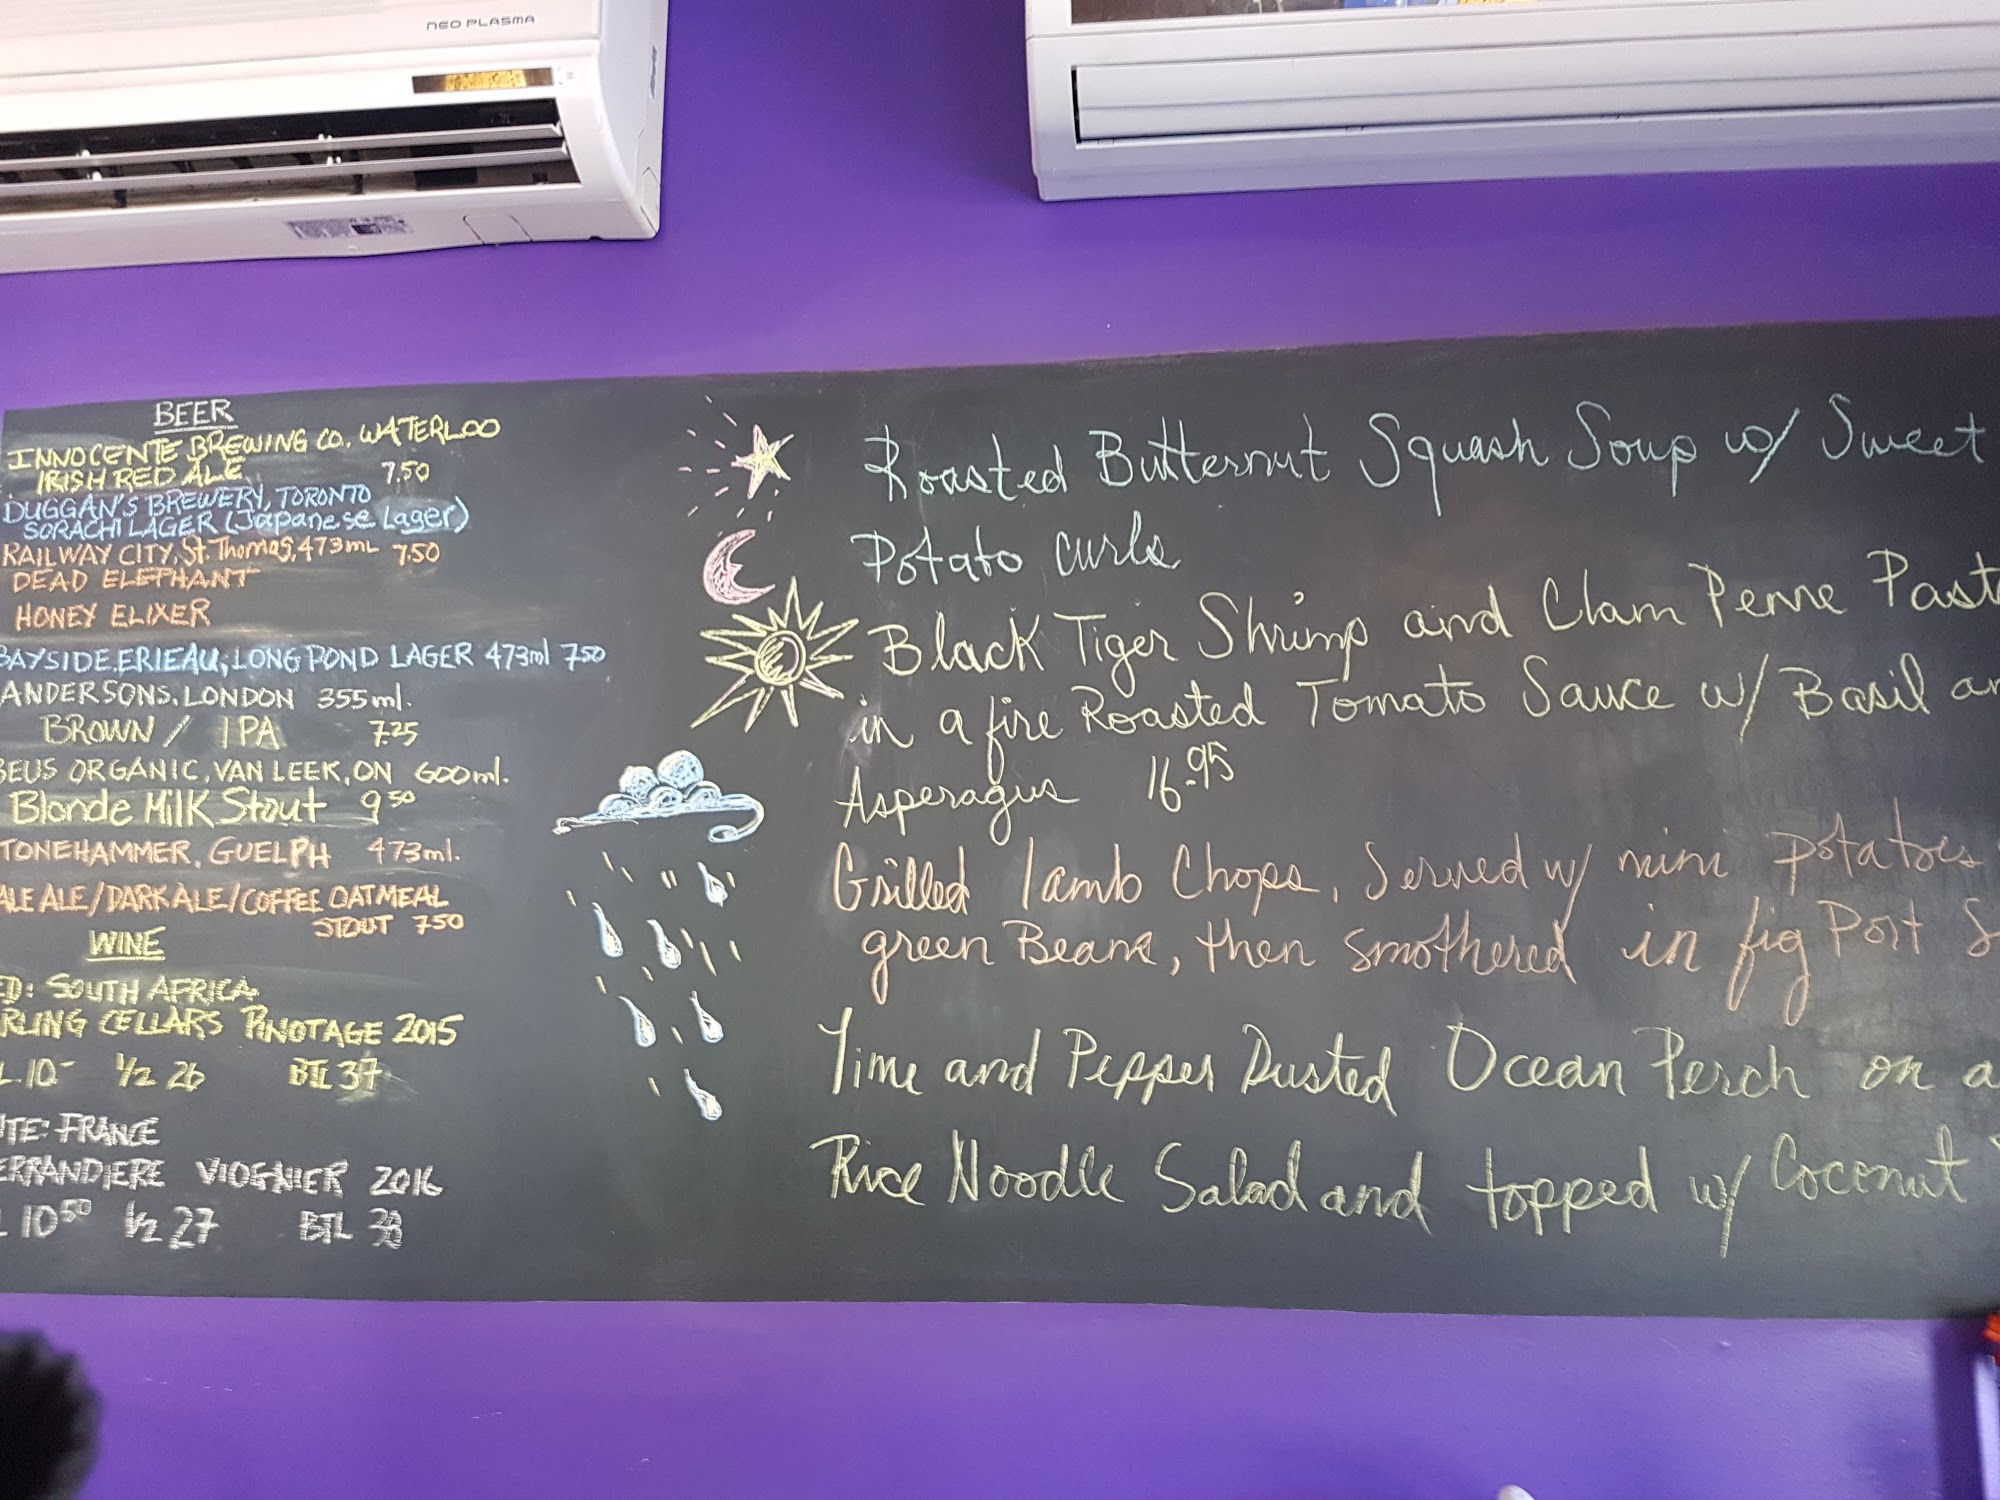 NEO PLASMA
BEER
INNOCENTE BREWING CO. WATERLOO
IRISH RED ALE 7.50
DUGGAN'S BREWERY, TORONTO
SORACHI LAGER (Japanese Lager)
RAILWAY CITY, St. Thomas, 473mL 7.50
DEAD ELEPHANT
HONEY ELIXER
BAYSIDE, ERIEAU, LONG POND LAGER 473ml 750
ANDERSONS, LONDON 355ml.
BROWN / IPA 7.25
BEUS ORGANIC, VAN LEEK, ON 600ml.
Blonde Milk Stout 9 50
TONEHAMMER, GUELPH 473ml.
ALE ALE/DARK ALE/COFFEE OATMEAL
STOUT 750
WINE
ED: SOUTH AFRICA
RLING CELLARS PINOTAGE 2015
L 10- 1/2 26 BTL 37
ITE: FRANCE
ERRANDIERE VIOGNIER 2016
L 10 50 1/2 27 BTL 38
Roasted Butternut Squash Soup w/ Sweet
Potato Curls
Black Tiger Shrimp and Clam Penne Pasta
in a fire Roasted Tomato Sauce w/ Basil an
Asperagus 16.95
Grilled lamb Chops, Served w/ mini potatoes
green Beans, then smothered in fig Port S
Lime and Pepper Dusted Ocean Perch on a
Rice Noodle Salad and topped w/ Coconut